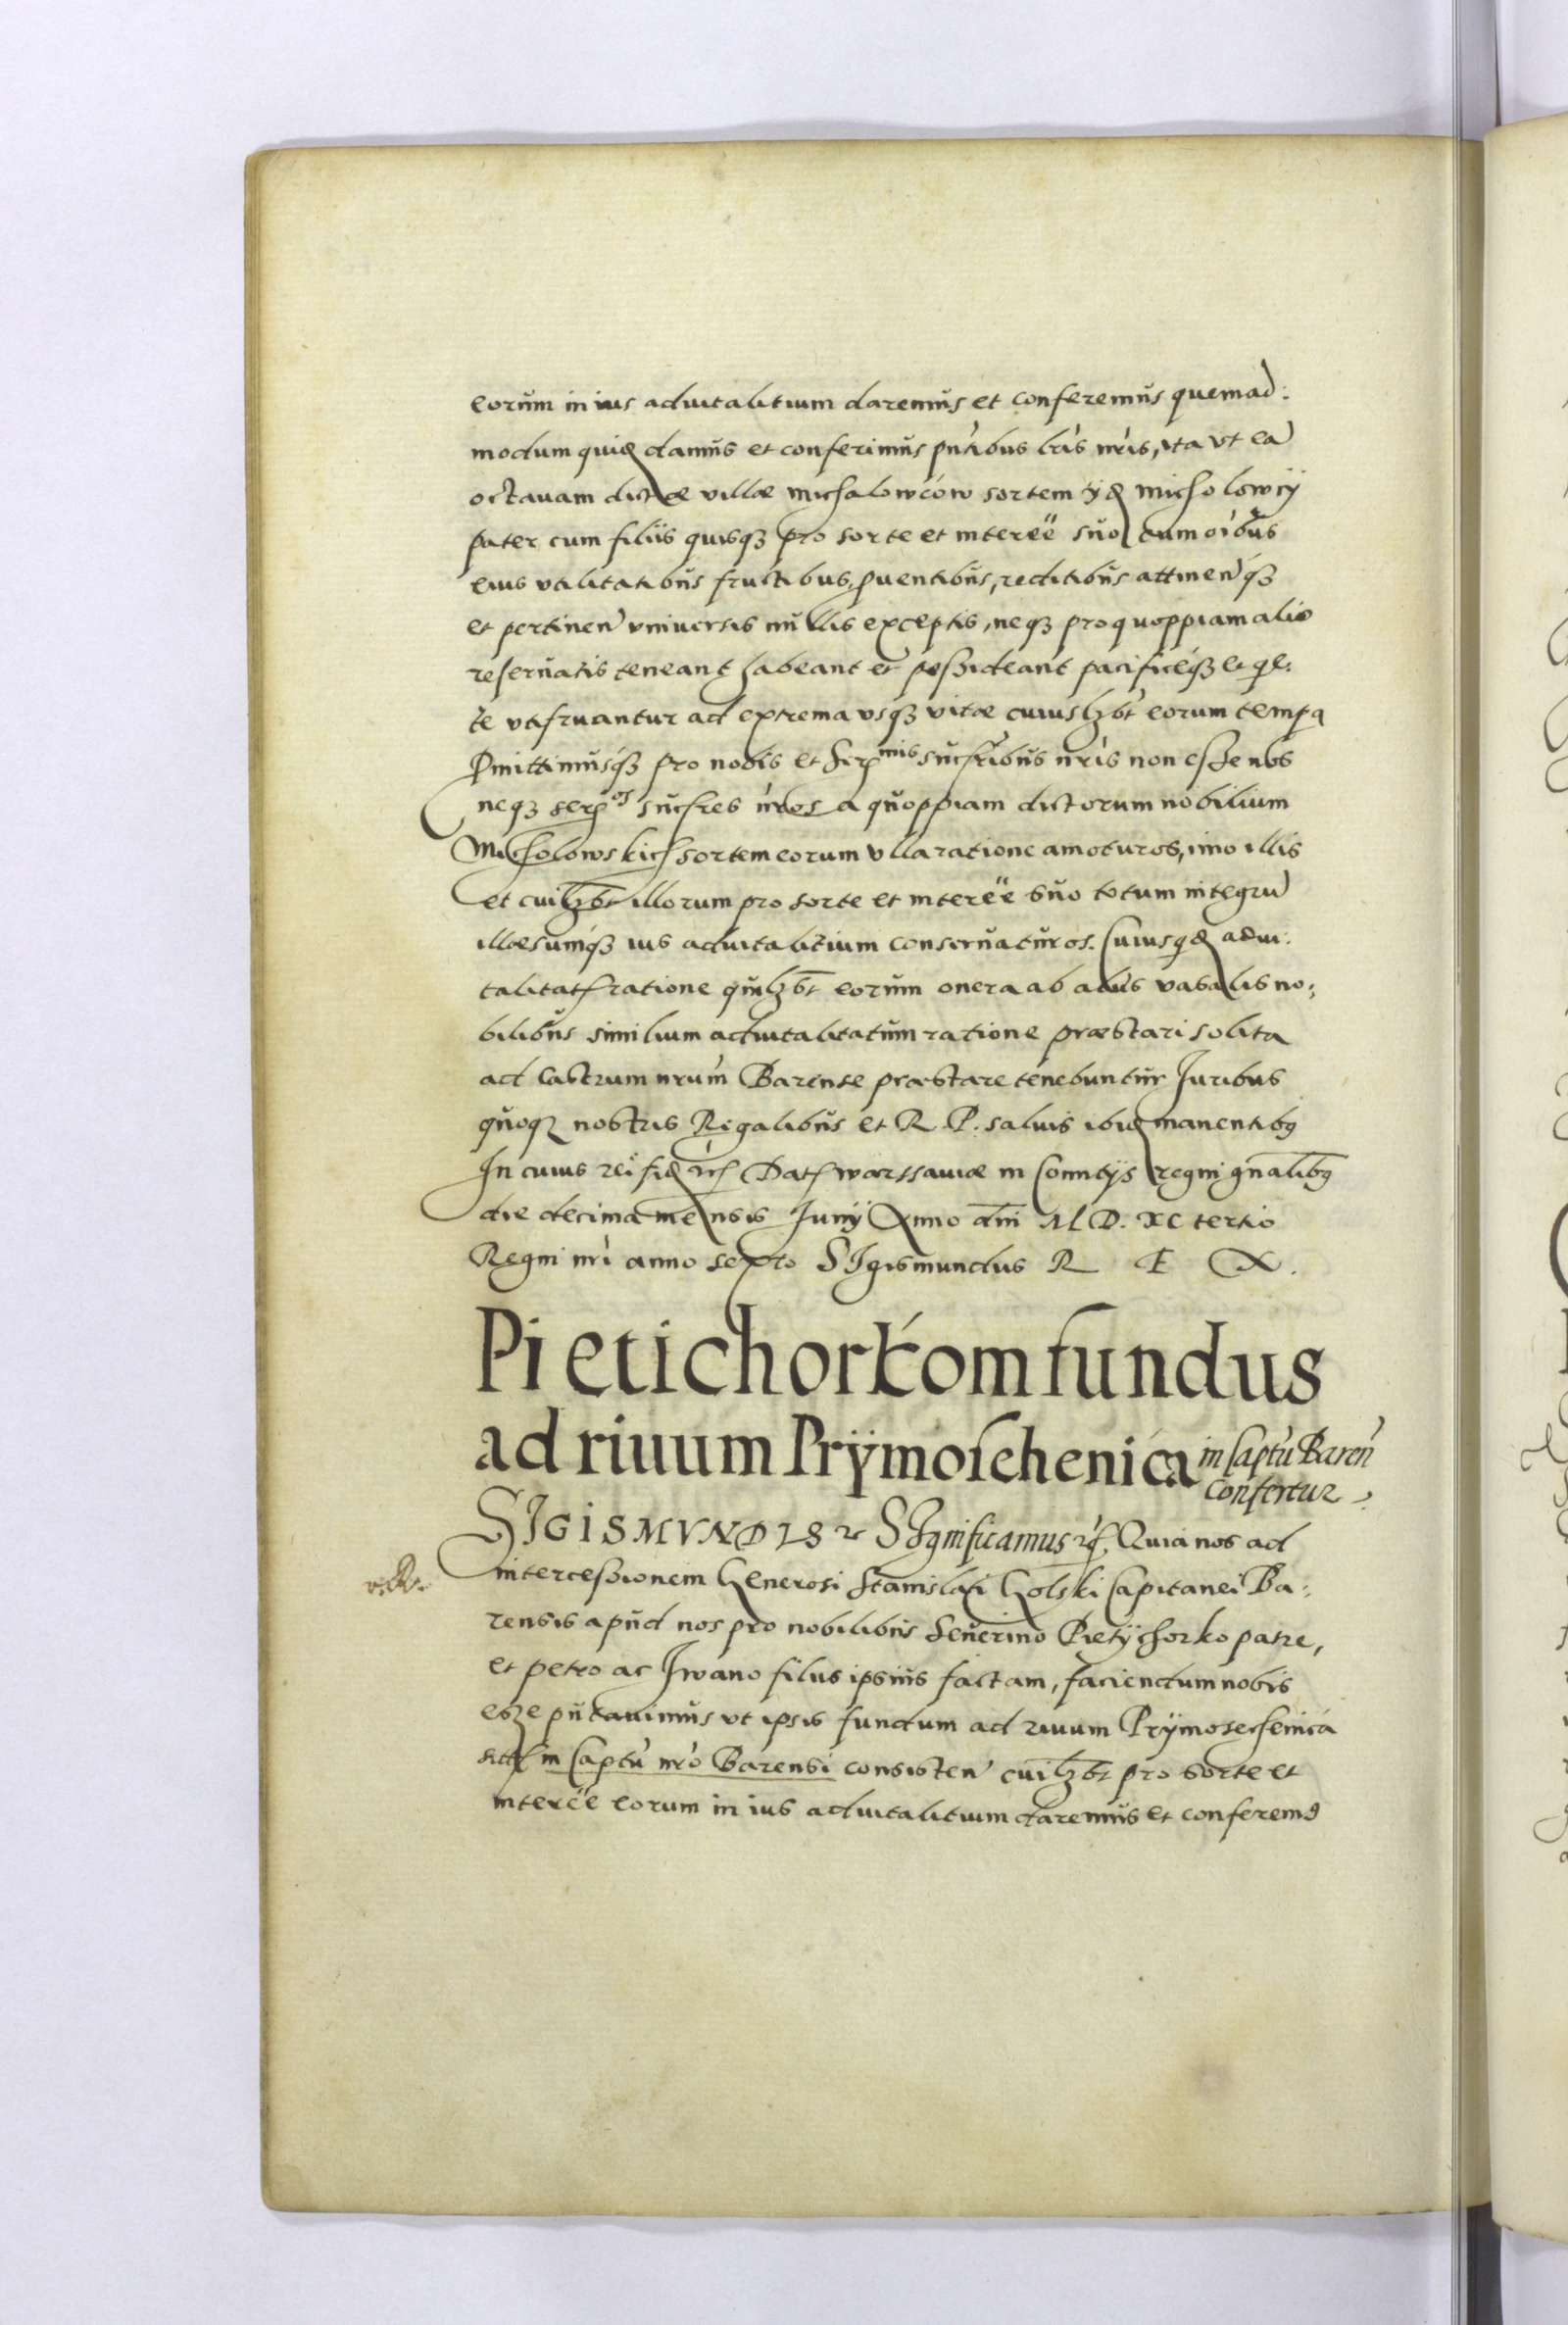 eorum in ius aduitalitium daremus et conferemus quemad:
modum quidem damus et conferimus pñtibus lris nris, ita vt eã
octauam dictæ villæ Michalowcow sortem ijdem Micholowcÿ
pater cum filiis quisq3 pro sorte et interẽe suo cum oibus
eius vtilitatibus fructibus, puentibus, reditibus attinen q3
et pertinen vniuersis nullis exceptis, neq3 pro quoppiam alio
reseruatis teneant habeant et possideant pacificeq3 et qe:
te vtifruantur ad extrema vsq3 vitæ cuiuslzbt eorum tempa
Pmittimusq3 pro nobis et Ser^mis sucribus nris non esse nos
neq3 ser^os sucres nros a quoppiam dictorum nobilium
Micholowskich sortem eorum vlla ratione amoturos, imo illis
et cuilzbt illorum pro sorte et interẽe suo totum integrũ
illæsumq3 ius aduitalitium conseruaturos. Cuiusqdem adui:
talitatis ratione quilzbt eorum onera ab alijs vasalis no:
bilibus similium aduitalitatum ratione præstari solita
ad Castrum nrum Barense præstare tenebuntur Iuribus
quoq3 nostris Regalibus et R. P. saluis ibidem manentibq
In cuius rei fidem etc Dat Warssauiæ in Comitijs regni gnalibq
die decima mensis Iunij Anno dni M D. XC tertio
Regni nri anno sexto SIgismundus R E X.
Pietichorkom fundus
ad riuum Prÿmoschenica in Captũ Baren
Confertur
SIGISMVNDVS etc SIgnificamus etc. Quia nos ad
intercessionem Generosi Stanislai Golski Capitanei Ba:
rensis apud nos pro nobilibus Seuerino Pietÿchorko patre,
et petro ac Iwano filiis ipsius factam, faciendum nobis
esse putauimus vt ipsis fundum ad riuum Prÿmosechenica
sitũ in Captũ nro Barensi consisten cuilzbt pro sorte et
interẽe eorum in ius aduitalitium daremus et conferemq